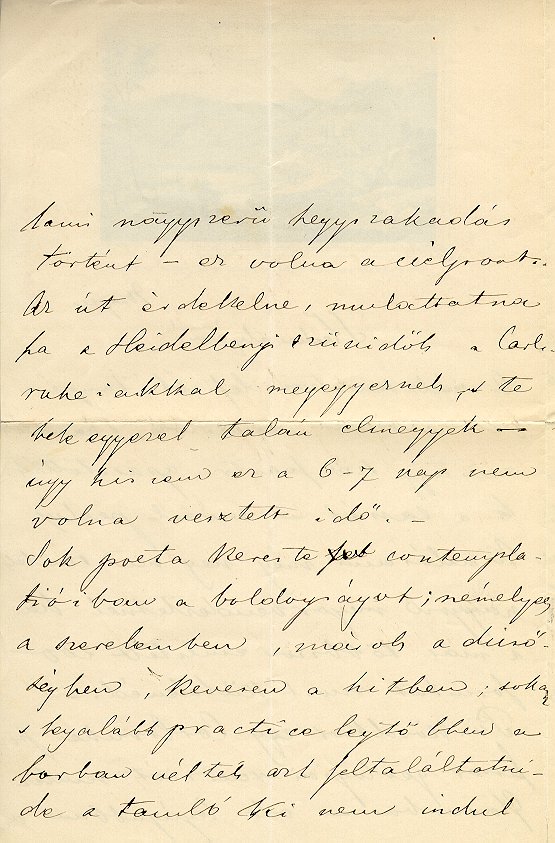 lami nagyszerű hegyszakadás
történt – ez volna a célpont.
Az út érdekelne, mulattatna
ha a Heidelbergi szünidők a Carls-
ruheiakkal megegyeznek, s te
velek egyezel talán elmegyek –
úgy hiszem ez a 6–7 nap nem
volna vesztett idő. –
Sok poeta kereste contempla-
tióiban a boldogságot; némelyek
a szerelemben, mások a dicső-
ségben, kevesen a hitben; sokan
s legalább practice legtöbben a
borban vélték azt feltaláltatni –
de a tanuló ki nem indul